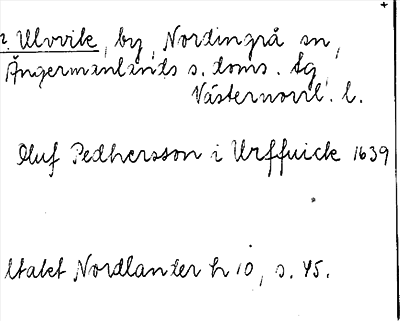 Ulvvik, by, Nordingrå sn,
Ångermanlands s. doms. tg,
Västernorrl. l.
Oluf Pedhersson i Urffuick 1639
Utalet Nordlander h 10, s. 45.